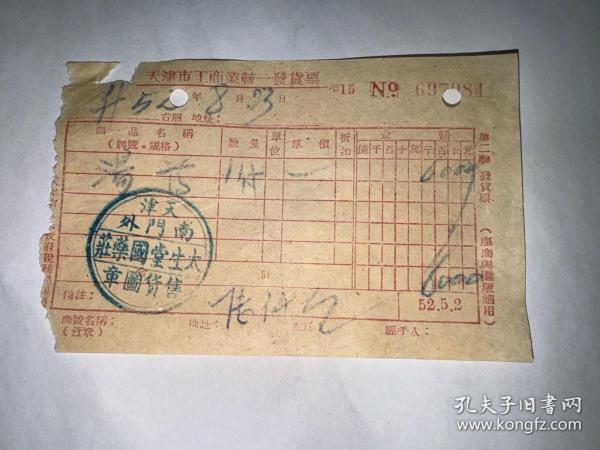 天津市工商業統一發貨票
增15 № 697084
52年8月23日
台照 地址：
商品名稱 數量 單位 單價 折扣 金額
（牌號·規格） 億千百十萬千百十元
湯藥 1付 6000
天津
南門外
太生堂國藥莊
售貨圖章
6000
備註：
52.5.2
商號名稱： 地址： 經手人：
（蓋章）
第二聯 發貨票
孔夫子旧书网
www.kongfz.com